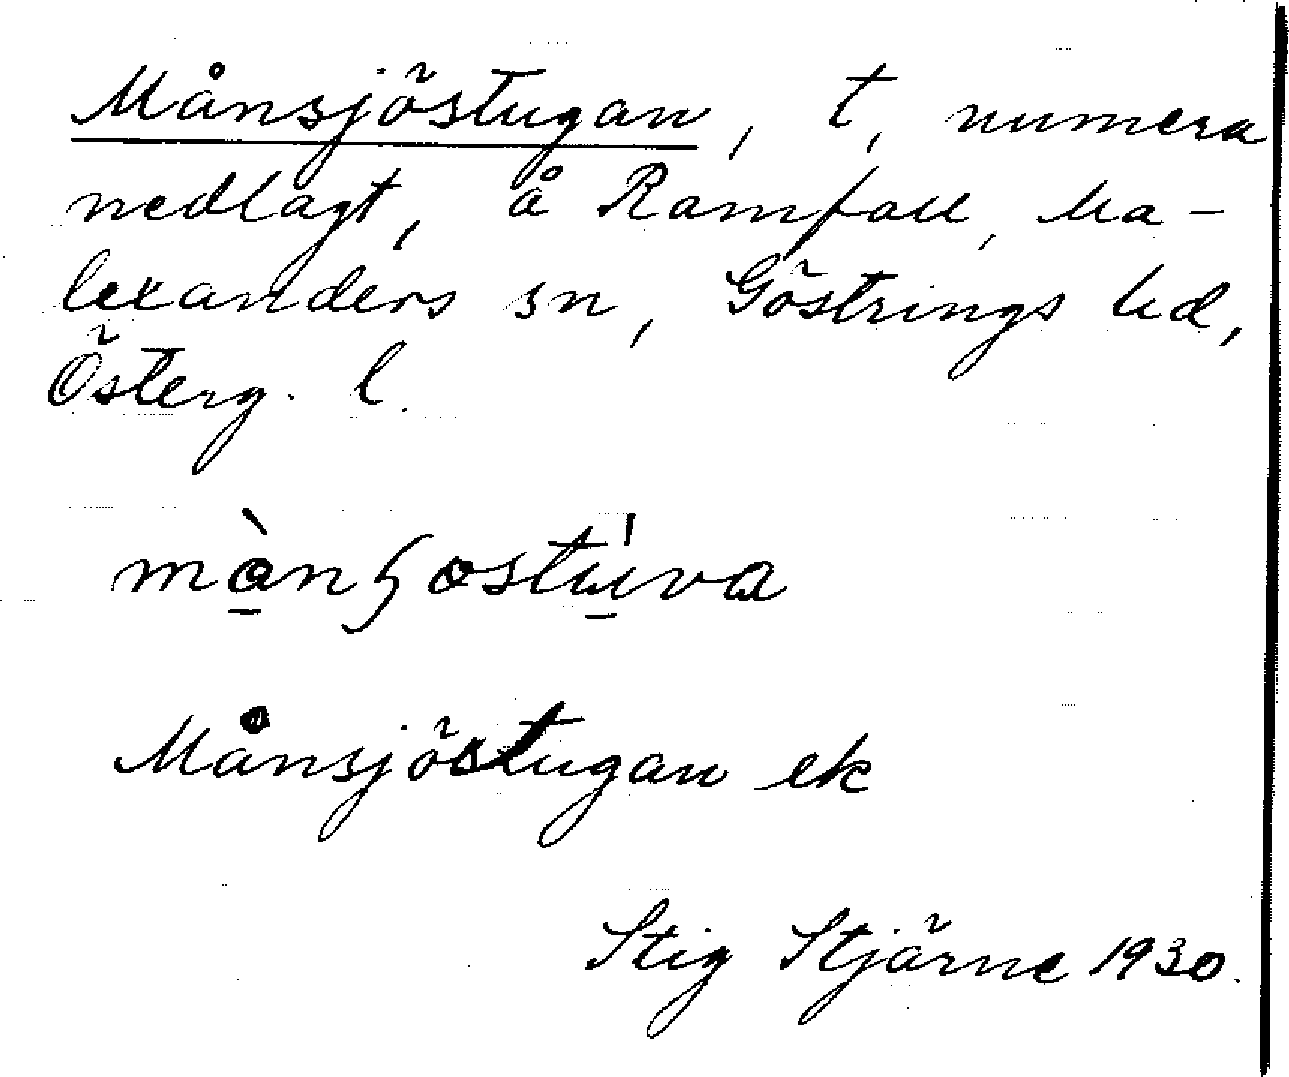 Månsjöstugan, t, numera
nedlagt, å Ramfall, Ma-
lexanders sn, Göstrings hd,
Österg. l.
mànꞔostu̍va
Månsjöstugan ek
Stig Stjärne 1930.